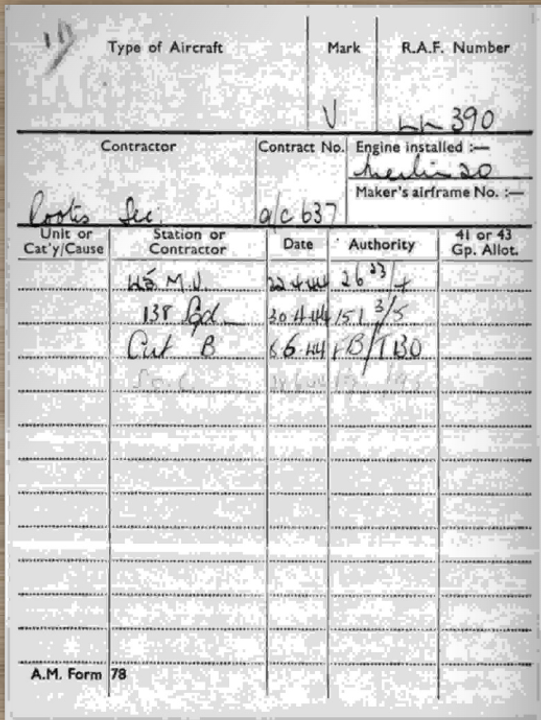 Type of Aircraft Mark R.A.F. Number
V LL 390
Contractor Contract No. Engine installed :—
Merlin 20
Maker's airframe No. :—
Rootes Sec. a/c 637
Unit or Cat'y/Cause Station or Contractor Date Authority 41 or 43 Gp. Allot.
45 M.U. 22 4 44 26 23/4
138 Sqd. 30.4.44 151 3/5
Cat B 6 44 FB/TBO
A.M. Form 78